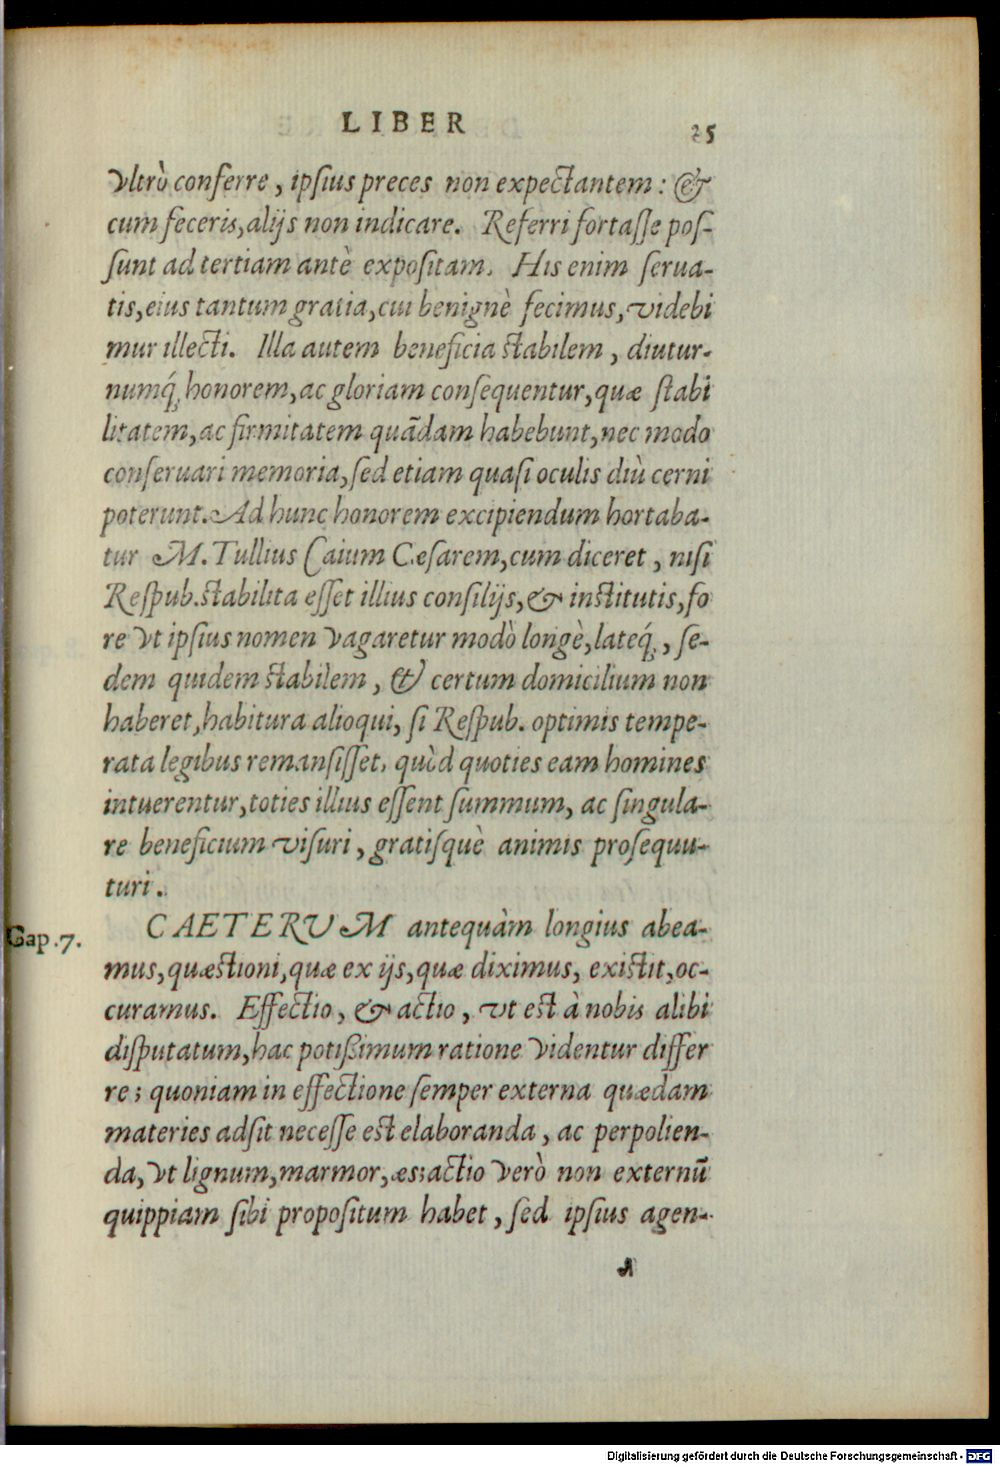 LIBER 25
Vltrò conferre, ipſius preces non expectantem: &
cum feceris, alijs non indicare. Referri fortaſſe poſ-
ſunt ad tertiam antè expoſitam. His enim ſerua-
tis, eius tantum gratia, cui benignè fecimus, videbi
mur illecti. Illa autem beneficia ſtabilem, diutur-
numq́; honorem, ac gloriam conſequentur, quæ ſtabi
litatem, ac firmitatem quãdam habebunt, nec modo
conſeruari memoria, ſed etiam quaſi oculis diù cerni
poterunt. Ad hunc honorem excipiendum hortaba-
tur M. Tullius Caium Cæſarem, cum diceret, niſi
Reſpub. ſtabilita eſſet illius conſilijs, & inſtitutis, fo
re vt ipſius nomen vagaretur modò longè, lateq́;, ſe-
dem quidem ſtabilem, & certum domicilium non
haberet, habitura alioqui, ſi Reſpub. optimis tempe-
rata legibus remanſiſſet, quòd quoties eam homines
intuerentur, toties illius eſſent ſummum, ac ſingula-
re beneficium viſuri, gratiſquè animis proſequu-
turi.
Cap. 7. CAETERVM antequàm longius abea-
mus, quæſtioni, quæ ex ijs, quæ diximus, exiſtit, oc-
curamus. Effectio, & actio, vt eſt à nobis alibi
diſputatum, hac potißimum ratione videntur differ
re; quoniam in effectione ſemper externa quædam
materies adſit neceſſe eſt elaboranda, ac perpolien-
da, vt lignum, marmor, æs; actio verò non externũ
quippiam ſibi propoſitum habet, ſed ipſius agen-
Digitalisierung gefördert durch die Deutsche Forschungsgemeinschaft - DFG